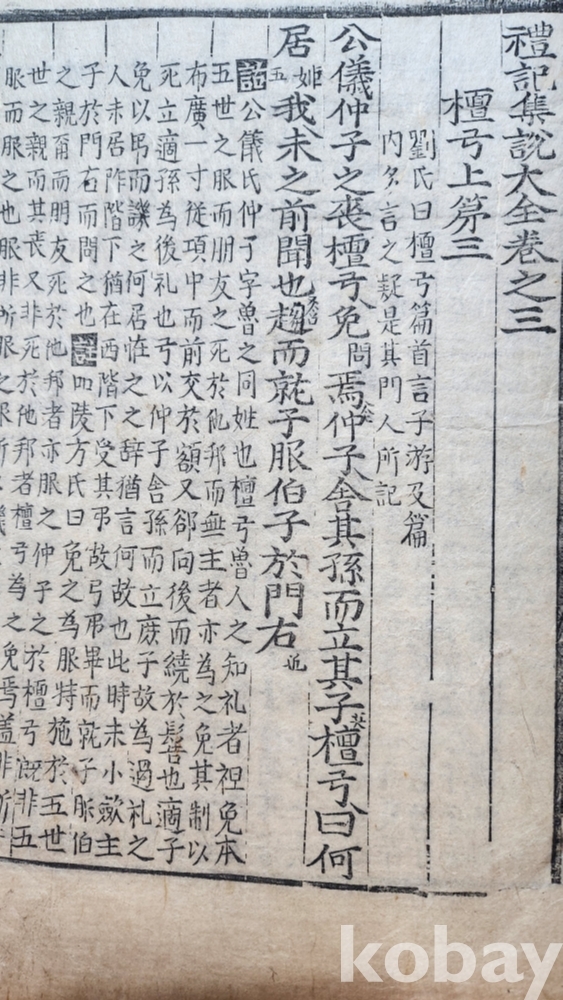 禮記集說大全卷之三
檀弓上第三
劉氏曰檀弓篇首言子游及篇
内多言之疑是其門人所記
公儀仲子之喪檀弓免問焉仲子舍其孫而立其子檀弓曰何
居姬我未之前聞也趨而就子服伯子於門右
公儀氏仲子字魯之同姓也檀弓魯人之知礼者袒免本
五世之服而朋友之死於他邦而無主者亦為之免其制以
布廣一寸從項中而前交於額又卻向後而繞於髻也適子
死立適孫為後礼也弓以仲子舍孫而立庶子故為過礼之
免以吊而譏之何居恠之之辞猶言何故也此時未小斂主
人未居阼階下猶在西階下受其吊故弓吊畢而就子服伯
子於門右而問之也 嚴陵方氏曰免之為服特施於五世
之親爾而朋友死於他邦者亦服之仲子之於檀弓旣非五
世之親而其喪又非死於他邦者檀弓為之免焉蓋非所
服而服之也服非所服之服所
kobay